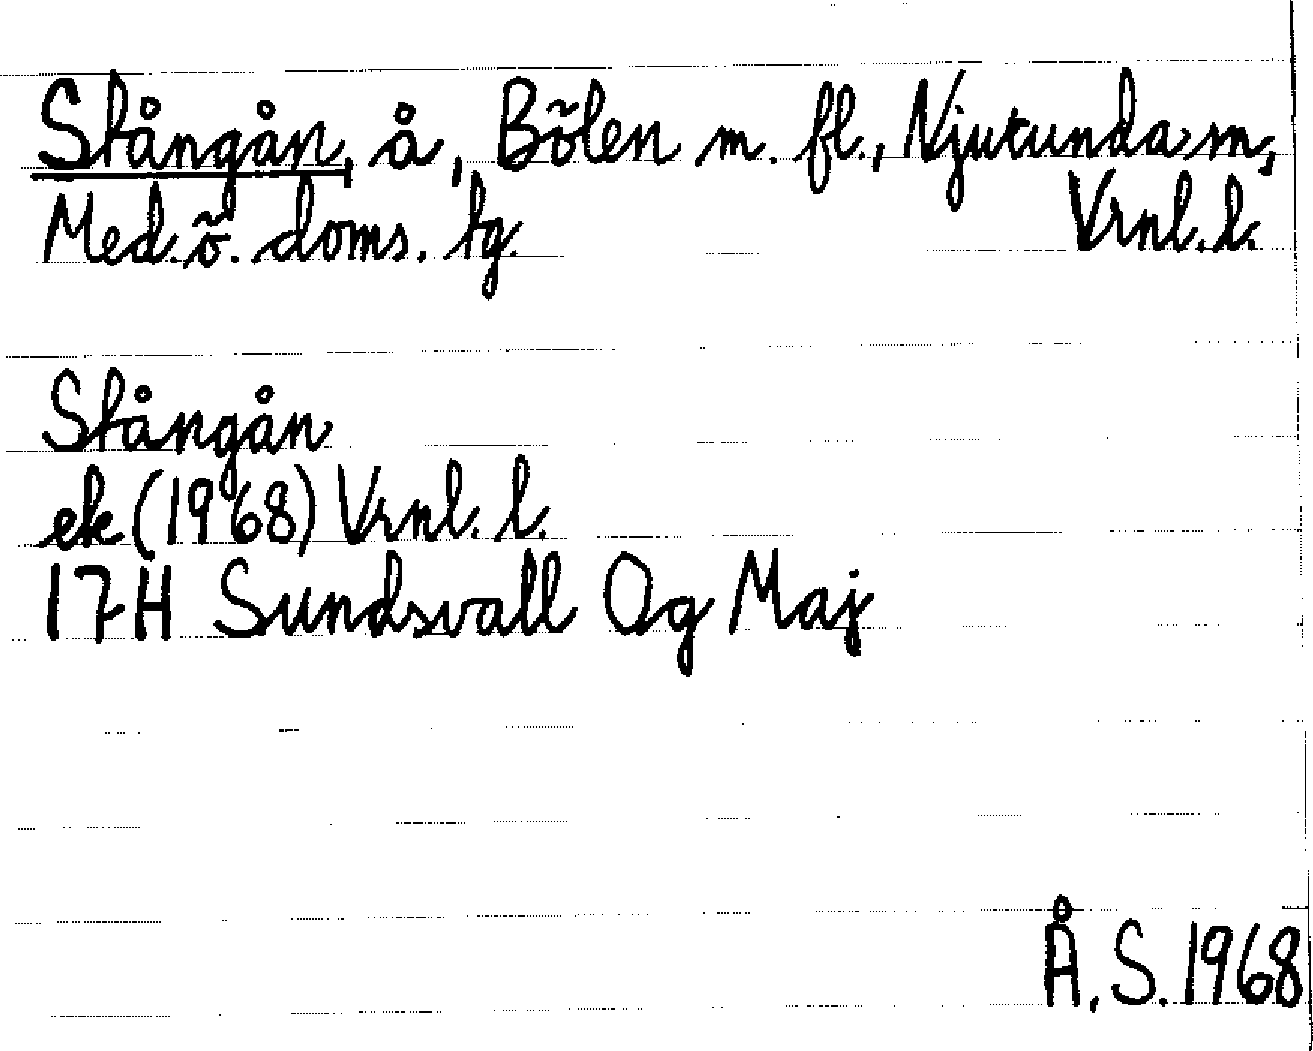 Stångån, å, Bölen m. fl., Njutunda sn,
Med.ö. doms. tg. Vrnl. l.
Stångån
ek (1968) Vrnl. l.
17H Sundsvall Og Maj
Å. S. 1968